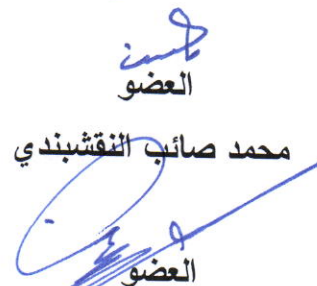 العضو
محمد صائب النقشبندي
العضو